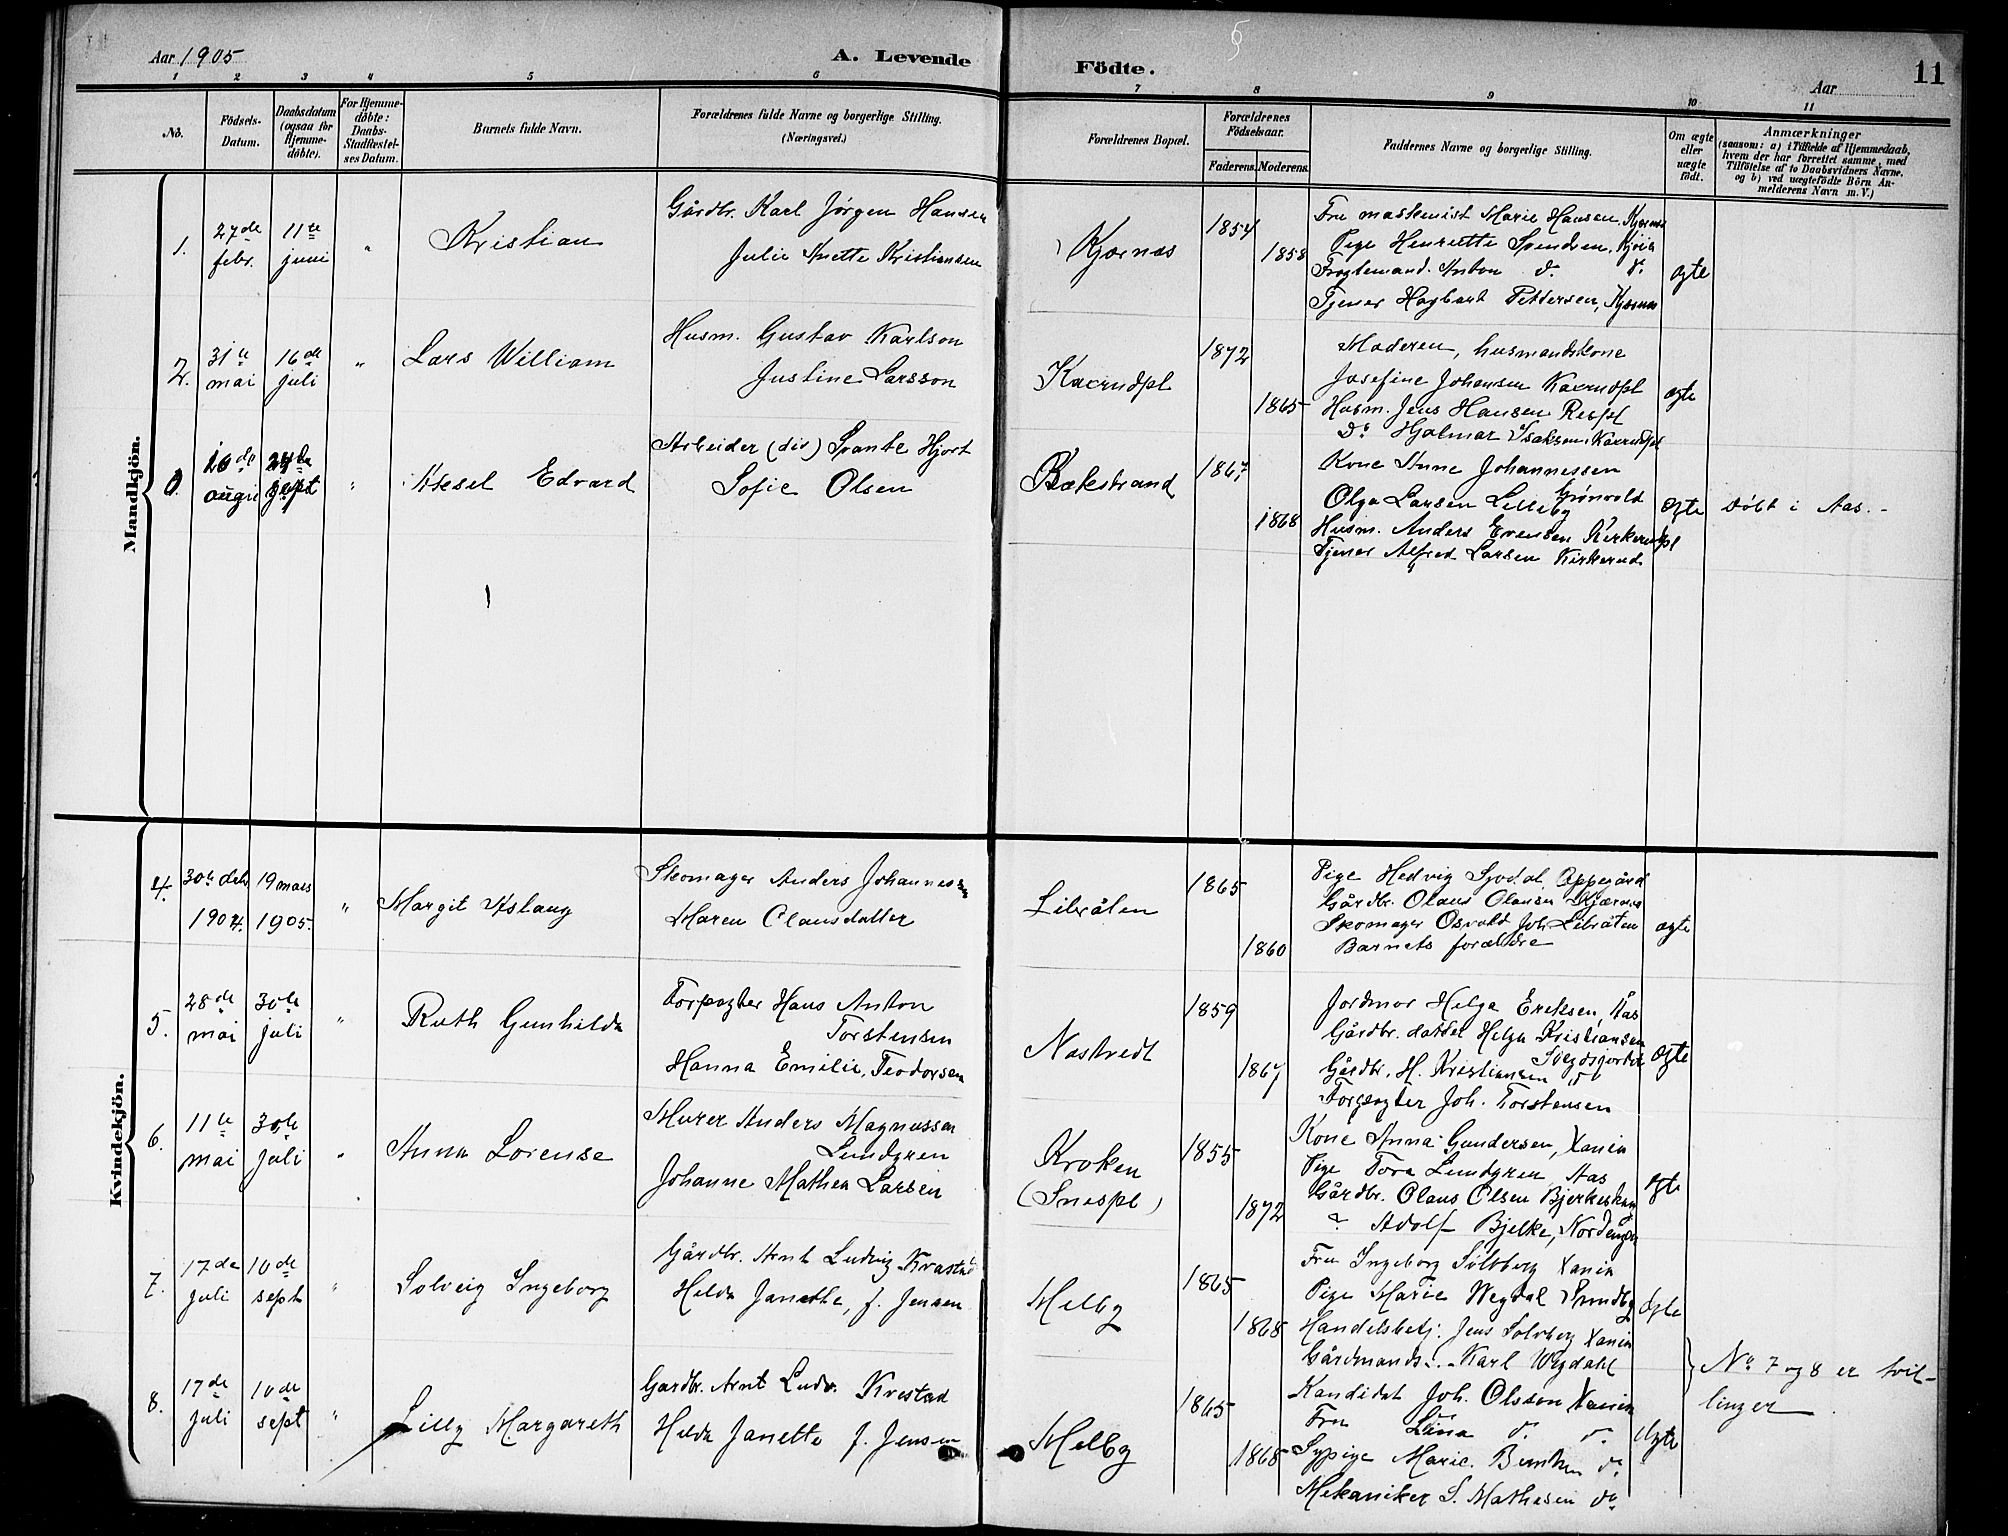 Aar 1905
A. Levende
Födte.
Aar
11
1 2 3 4 5 6 7 8 9 10 11
No.
Födsels-
Datum.
Daabsdatum
(ogsaa for
Hjemme-
døbte).
For Hjemme-
døbte:
Daabs-
Stadfæstel-
ses Datum.
Barnets fulde Navn.
Forældrenes fulde Navne og borgerlige Stilling.
(Næringsvei.)
Forældrenes Bopæl.
Forældrenes
Födselsaar.
Faderens. Moderens.
Faddernes Navne og borgerlige Stilling.
Om ægte
eller
uægte
födt.
Anmærkninger
(saasom: a) i Tilfælde af Hjemmedaab,
hvem der har forrettet samme, med
Tilföielse af to Daabsvidners Navne,
og b) ved uægtefödte Börn An-
melderens Navn m. V.)
Mandkjön.
1.
27de
febr.
11te
juni
"
Kristian
Gårdbr. Karl Jørgen Hansen
Julie Anette Kristiansen
Kjærnæs
1854
1858
Fru maskinist Marie Hansen, Kjærnæs
Pige Henriette Svendsen,
Anton do. do.
Tjener Hagbart Pettersen, Kjærnæs
ægte
2.
31te
mai
16de
juli
"
Lars William
Husm. Gustav Karlson
Justine Larsson
Kaxrudpl
1872
1865
Moderen, husmandskone
Josefine Johansen Kaxrudpl
Husm. Jens Hansen
Do Hjalmar Isaksen, Kaxrudpl
ægte
augu
24de
sept
"
Aksel Edvard
Arbeider (div) Svante Hjort
Sofie Olsen
Bækstrand
1867
1868
Kone Anne Johannessen
Grønvold
Olga Larsen Lilleby
Husm. Anders Evensen Kirkerudpl
Tjener Alfred Larsen Kirkerud
ægte
døbt i Aas.-
Kvindekjön.
4.
30te debr
1904.
19 mars
1905.
"
Margit Aslaug
Skomager Anders Johannesen
Maren Clausdatter
Libråten
1865
1860
Pige Hedvig Oppegård
Gårdbr. Olaus Olausen Kjærnæs
Skomager Osvald Joh. Libråten
Barnets forældre
ægte
5.
28de
mai
30te
juli
"
Ruth Gunhilda
Forpagter Hans Anton
Torstensen
Hanna Emilie, Teodorsen
Nastvedt
1859
1867
Jordmor Helga Eriksen, Aas
Gårdbr. datter Helga Kristiansen
Gårdbr. H. Kristiansen do
Forpagter Joh. Torstensen
ægte
6.
11te
mai
30te
juli
"
Anna Lovense
Murer Anders Magnussen
Lundgren
Johanne Mathea Larsen
Kroken
(Snespl)
1855
1872
Kone Anna Gundersen, Xania
Pige Tora Lundgren, Aas
Gårdbr. Olaus Olsen
" Adolf Bjelke, Nordengen
ægte
7.
17de
juli
10de
sept
"
Solveig Ingeborg
Gårdbr. Arnt Ludvig Krastad
Hilda Janette, f. Jensen
Melby
1865
1868
Fru Ingeborg Solberg Xania
Pige Marie Wegdal
Handelsbetj. Jens Solberg Xania
Gårdmands.. Karl Wegdahl
ægte
No 7 og 8 er tvil-
linger
8.
17de
juli
10de
sept
"
Lilly Margareth
Gardbr. Arnt Ludv. Krastad
Hilda Janette f. Jensen
Melby
1865
1868
Kandidat Joh. Olsson Xania
Fru Lina do. do.
Sypige Marie do.
Mekaniker S. Mathesen do
ægte